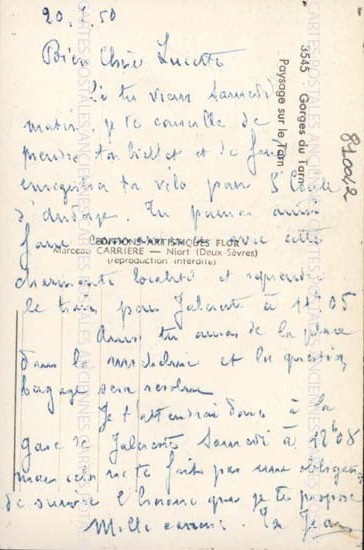 20. 50
Bien Chère Lucette
Si tu viens Samedi
matin, je te conseille de
prendre ton billet et de faire
enregistrer ta vélo pour St
Tu pourras ainsi
faire connaissance avec cette
charmante localité et reprendre
le train pour à 11h05
Ainsi tu auras de la place
dans la et la question
bagage sera resolue
Je t'attendrai donc à la
gare de Samedi à 12h08
mais cela ne te fait pas une obligation
de suivre l'horaire que je te propose
Mille Ton Jean
3545 Gorges du Tarn
Paysage sur le Tarn
810042
EDITIONS ARTISTIQUES FLOR
Marceau CARRIERE — Niort (Deux-Sèvres)
(reproduction interdite)
CARTES POSTALES ANCIENNES